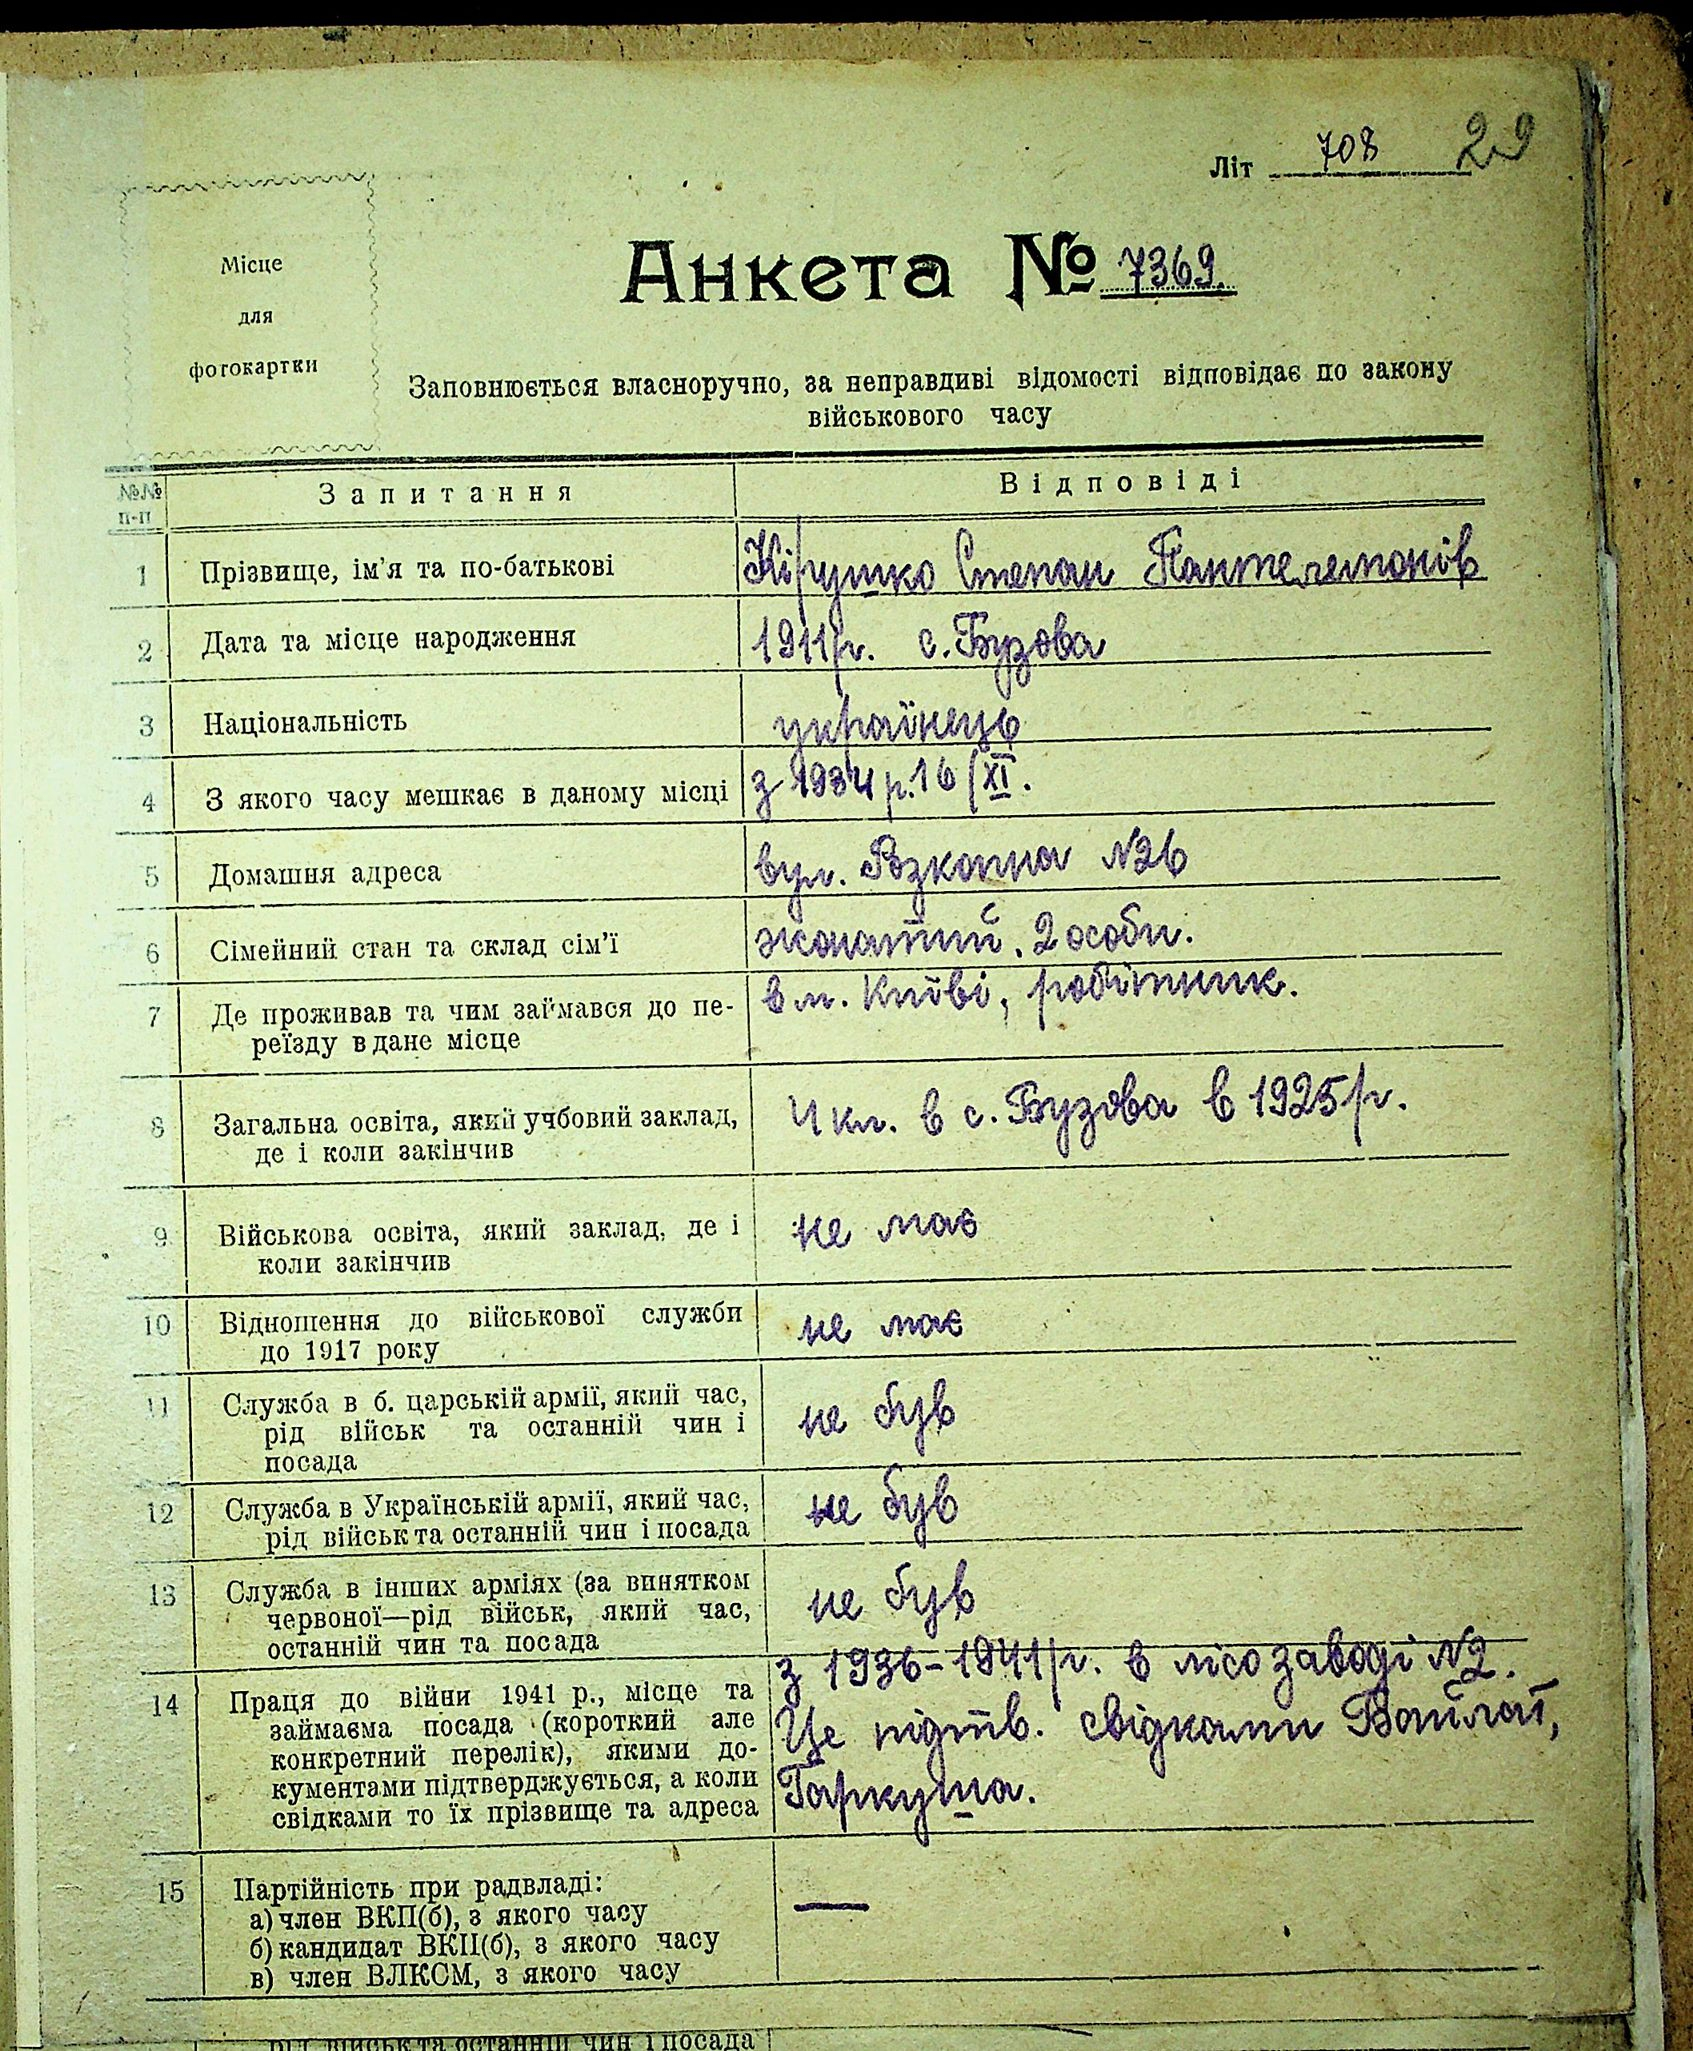 Літ 708 29
Місце
для
фотокартки
Анкета № 7369.
Заповнюється власноручно, за неправдиві відомості відповідає по закону
військового часу
№№ п-п Запитання Відповіді
1 Прізвище, ім'я та по-батькові Кірушко Степан Пантелемонів
2 Дата та місце народження 1911 р. с. Бузова
3 Національність українець
4 З якого часу мешкає в даному місці з 1934 р. 16/XI.
5 Домашня адреса вул. №26
6 Сімейний стан та склад сім'ї жонатий. 2 особи.
7 Де проживав та чим займався до пе- в м. Київі, робітник.
реїзду в дане місце
8 Загальна освіта, який учбовий заклад, 4 кл. в с. Бузова в 1925 р.
де і коли закінчив
9 Військова освіта, який заклад, де і не має
коли закінчив
10 Відношення до військової служби не має
до 1917 року
11 Служба в б. царській армії, який час, не був
рід військ та останній чин і
посада
12 Служба в Українській армії, який час, не був
рід військ та останній чин і посада
13 Служба в інших арміях (за винятком не був
червоної—рід військ, який час,
останній чин та посада
14 Праця до війни 1941 р., місце та з 1936-1941 р. в лісозаводі №2.
займаєма посада (короткий але Це підтв. свідками
конкретний перелік), якими до- Гаркуша.
кументами підтверджується, а коли
свідками то їх прізвище та адреса
15 Партійність при радвладі: —
а) член ВКП(б), з якого часу
б) кандидат ВКП(б), з якого часу
в) член ВЛКСМ, з якого часу
рід військ та останній чин і посада